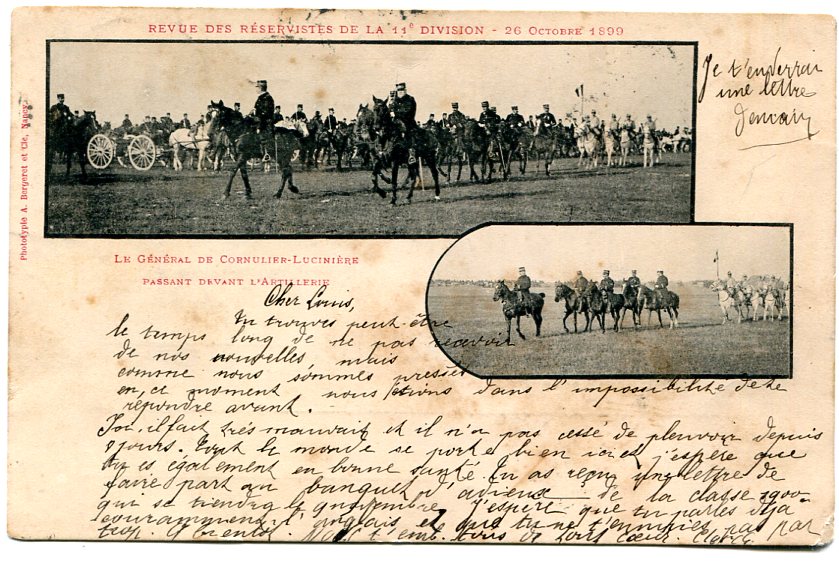 REVUE DES RÉSERVISTES DE LA 11e DIVISION - 26 OCTOBRE 1899
Je t'enverrai
une lettre
demain
Phototypie A. Bergeret et Cie, Nancy
LE GÉNÉRAL DE CORNULIER-LUCINIÈRE
PASSANT DEVANT L'ARTILLERIE
Cher Louis,
Tu trouves peut-être
le temps long de ne pas recevoir
de nos nouvelles, mais
comme nous sommes pressés
en ce moment nous étions dans l'impossibilité de te
répondre avant.
Ici, il fait très mauvait et il n'a pas cessé de pleuvoir depuis
jours. Tout le monde se porte bien ici et j'espère que
tu es également en bonne santé. Tu as reçu une lettre de
faire part au banquet d'adieux de la classe 1900
qui se tiendra le novembre. J'espère que tu parles déjà
couramment l'anglais et que tu ne t'ennuies pas par
trop. A bientôt. tous de tout cœur.